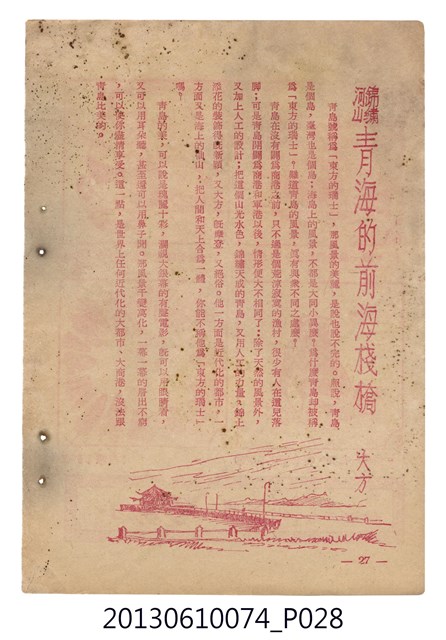 錦繡河山
青海的前海棧橋
大方
青島號稱為「東方的瑞士」，那風景的美麗，是說也說不完的。雖說，青島
是個島，臺灣也是個島；海島上的風景，不都是大同小異麼？為什麼青島却被稱
為「東方的瑞士」？難道青島的風景，真有與衆不同之處麼？
青島在沒有闢為商港之前，只不過是個荒涼寂寞的漁村，很少有人在這兒落
脚；可是青島開闢為商港和軍港以後，情形便大不相同了：除了天然的風景外，
又加上人工的設計；把這個山光水色，錦繡天成的青島，又用人工的力量，錦上
添花的裝飾得既新穎，又大方，既摩登，又絕俗。他一方面是近代化的都市，一
方面又是海上的仙山，把人間和天上合為一體，你能不稱他為「東方的瑞士」
嗎？
青島的美，可以說是風趣十當，濶視大銀幕的有聲電影，既可以用眼睛看，
又可以用耳朶聽，甚至還可以用鼻子聞。那風景千變萬化，一幕一幕的層出不窮
，可以使你盡情享受。這一點，是世界上任何近代化的大都市，大商港，沒法跟
青島比美的。
— 27 —
20130610074_P028